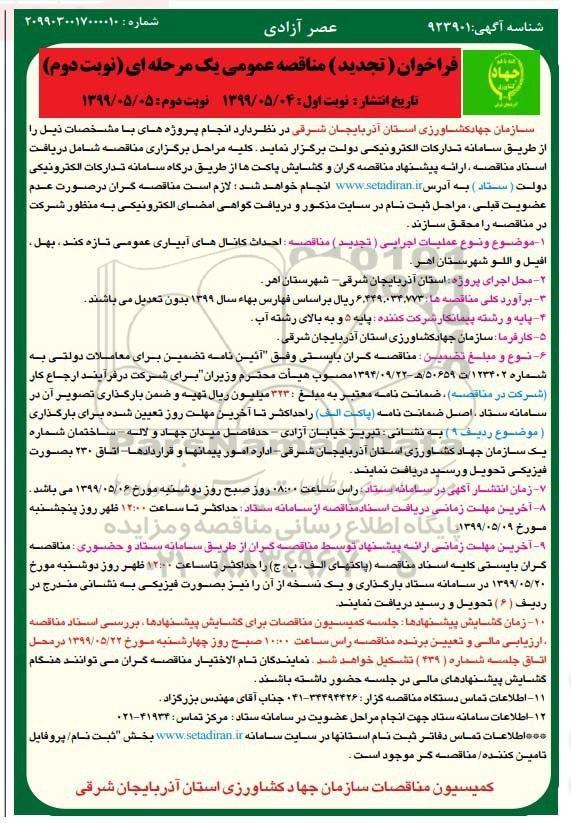 شناسه آگهی: ۹۲۳۹۰۱
عصر آزادی
شماره : ۲۰۹۹۰۳۰۰۱۷۰۰۰۰۱۰
فراخوان ( تجدید ) مناقصه عمومی یک مرحله ای (نوبت دوم)
تاریخ انتشار : نوبت اول: ۱۳۹۹/۰۵/۰۴ نوبت دوم: ۱۳۹۹/۰۵/۰۵
جهاد
سازمان جهادکشاورزی استان آذربایجان شرقی در نظر دارد انجام پروژه های با مشخصات ذیل را
از طریق سامانه تدارکات الکترونیکی دولت برگزار نماید . کلیه مراحل برگزاری مناقصه شامل دریافت
اسناد مناقصه ، ارائه پیشنهاد مناقصه گران و گشایش پاکت ها از طریق درگاه سامانه تدارکات الکترونیکی
دولت ( ستاد ) به آدرس www.setadiran.ir انجام خواهد شد ؛ لازم است مناقصه گران درصورت عدم
عضویت قبلی ، مراحل ثبت نام در سایت مذکور و دریافت گواهی امضای الکترونیکی به منظور شرکت
در مناقصه را محقق سازند .
۱-موضوع ونوع عملیات اجرایی ( تجدید ) مناقصه : احداث کانال های آبیاری عمومی تازه کند ، بهل ،
افیل و اللو شهرستان اهر .
۲-محل اجرای پروژه : استان آذربایجان شرقی- شهرستان اهر .
۳-برآورد کلی مناقصه ها : ۶،۴۴۹،۰۳۴،۷۷۳ ریال براساس فهارس بهاء سال ۱۳۹۹ بدون تعدیل می باشند .
۴-پایه و رشته پیمانکار شرکت کننده : پایه ۵ و به بالای رشته آب .
۵-کارفرما : سازمان جهادکشاورزی استان آذربایجان شرقی .
۶- نوع و مبلغ تضمین : مناقصه گران بایستی وفق "آئین نامه تضمین برای معاملات دولتی به
شماره ۱۲۳۴۰۲/ت ۵۰۶۵۹/ه-۱۳۹۴/۰۹/۲۲مصوب هیأت محترم وزیران"برای شرکت درفرآیند ارجاع کار
(شرکت در مناقصه) ، ضمانت نامه معتبر به مبلغ : ۳۲۳ میلیون ریال تهیه و ضمن بارگذاری تصویر آن در
سامانه ستاد ، اصل ضمانت نامه (پاکت الف) راحداکثر تا آخرین مهلت روز تعیین شده برای بارگذاری
( موضوع ردیف ۹ ) به نشانی : تبریز خیابان آزادی -حدفاصل میدان جهاد و لاله - ساختمان شماره
یک سازمان جهاد کشاورزی استان آذربایجان شرقی-اداره امور پیمانها و قراردادها- اتاق ۲۳۰ بصورت
فیزیکی تحویل و رسید دریافت نمایند .
۷-زمان انتشار آگهی در سامانه ستاد : راس ساعت ۰۸:۰۰ روز صبح روز دوشنبه مورخ ۱۳۹۹/۰۵/۰۶ می باشد .
۸-آخرین مهلت زمانی دریافت اسنادمناقصه ازسامانه ستاد : حداکثر تا ساعت ۱۲:۰۰ ظهر روز پنجشنبه
مورخ ۱۳۹۹/۰۵/۰۹.
۹-آخرین مهلت زمانی ارائه پیشنهاد توسط مناقصه گران از طریق سامانه ستاد و حضوری : مناقصه
گران بایستی کلیه اسناد مناقصه (پاکتهای الف ، ب ، ج) را حداکثر تاساعت ۱۲:۰۰ ظهر روز دوشنبه مورخ
۱۳۹۹/۰۵/۲۰ در سامانه ستاد بارگذاری و یک نسخه از آن را نیز بصورت فیزیکی به نشانی مندرج در
ردیف ( ۶ ) تحویل و رسید دریافت نمایند.
۱۰-زمان گشایش پیشنهادها : جلسه کمیسیون مناقصات برای گشایش پیشنهادها ، بررسی اسناد مناقصه
، ارزیابی مالی و تعیین برنده مناقصه راس ساعت ۱۰:۰۰ صبح روز چهارشنبه مورخ ۱۳۹۹/۰۵/۲۲ در محل
اتاق جلسه شماره ( ۴۳۹ ) تشکیل خواهد شد . نمایندگان تام الاختیار مناقصه گران می توانند هنگام
گشایش پیشنهادهای مالی در جلسه حضور داشته باشند .
۱۱-اطلاعات تماس دستگاه مناقصه گزار : ۳۴۴۹۴۴۲۶-۰۴۱ جناب آقای مهندس بزرگزاد .
۱۲-اطلاعات سامانه ستاد جهت انجام مراحل عضویت در سامانه ستاد : مرکز تماس : ۴۱۹۳۴-۰۲۱
***اطلاعات تماس دفاتر ثبت نام استانها در سایت سامانه www.setadiran.ir بخش "ثبت نام/ پروفایل
تامین کننده/ مناقصه گر موجود است .
کمیسیون مناقصات سازمان جهاد کشاورزی استان آذربایجان شرقی
پایگاه اطلاع رسانی مناقصه و مزایده